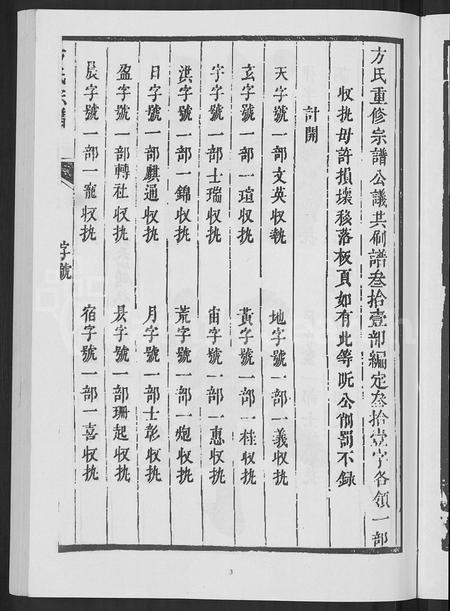 方氏重修宗譜公議共刷譜叁拾壹部編定叁拾壹字各領一部
收执毋許損壞移落板頁如有此等听公削罰不錄
計開
天字號一部文英收執
地字號一部一義收执
玄字號一部一瑄收执
黃字號一部一桂收执
宇字號一部士瑞收执
宙字號一部一惠收执
洪字號一部一錦收执
荒字號一部一炮收执
日字號一部麒通收执
月字號一部士彰收执
盈字號一部轉社收执
昃字號一部珊起收执
辰字號一部一寵收执
宿字號一部一喜收执
方氏宗譜
字號
3